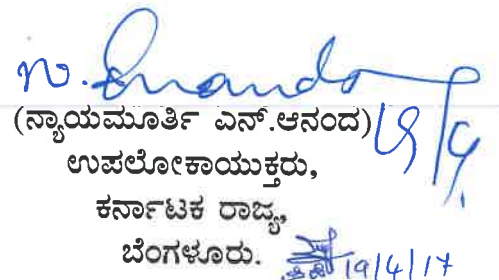 N. Ananda
(ನ್ಯಾಯಮೂರ್ತಿ ಎನ್.ಆನಂದ) 19/4
ಉಪಲೋಕಾಯುಕ್ತರು,
ಕರ್ನಾಟಕ ರಾಜ್ಯ,
ಬೆಂಗಳೂರು.
19/4/17